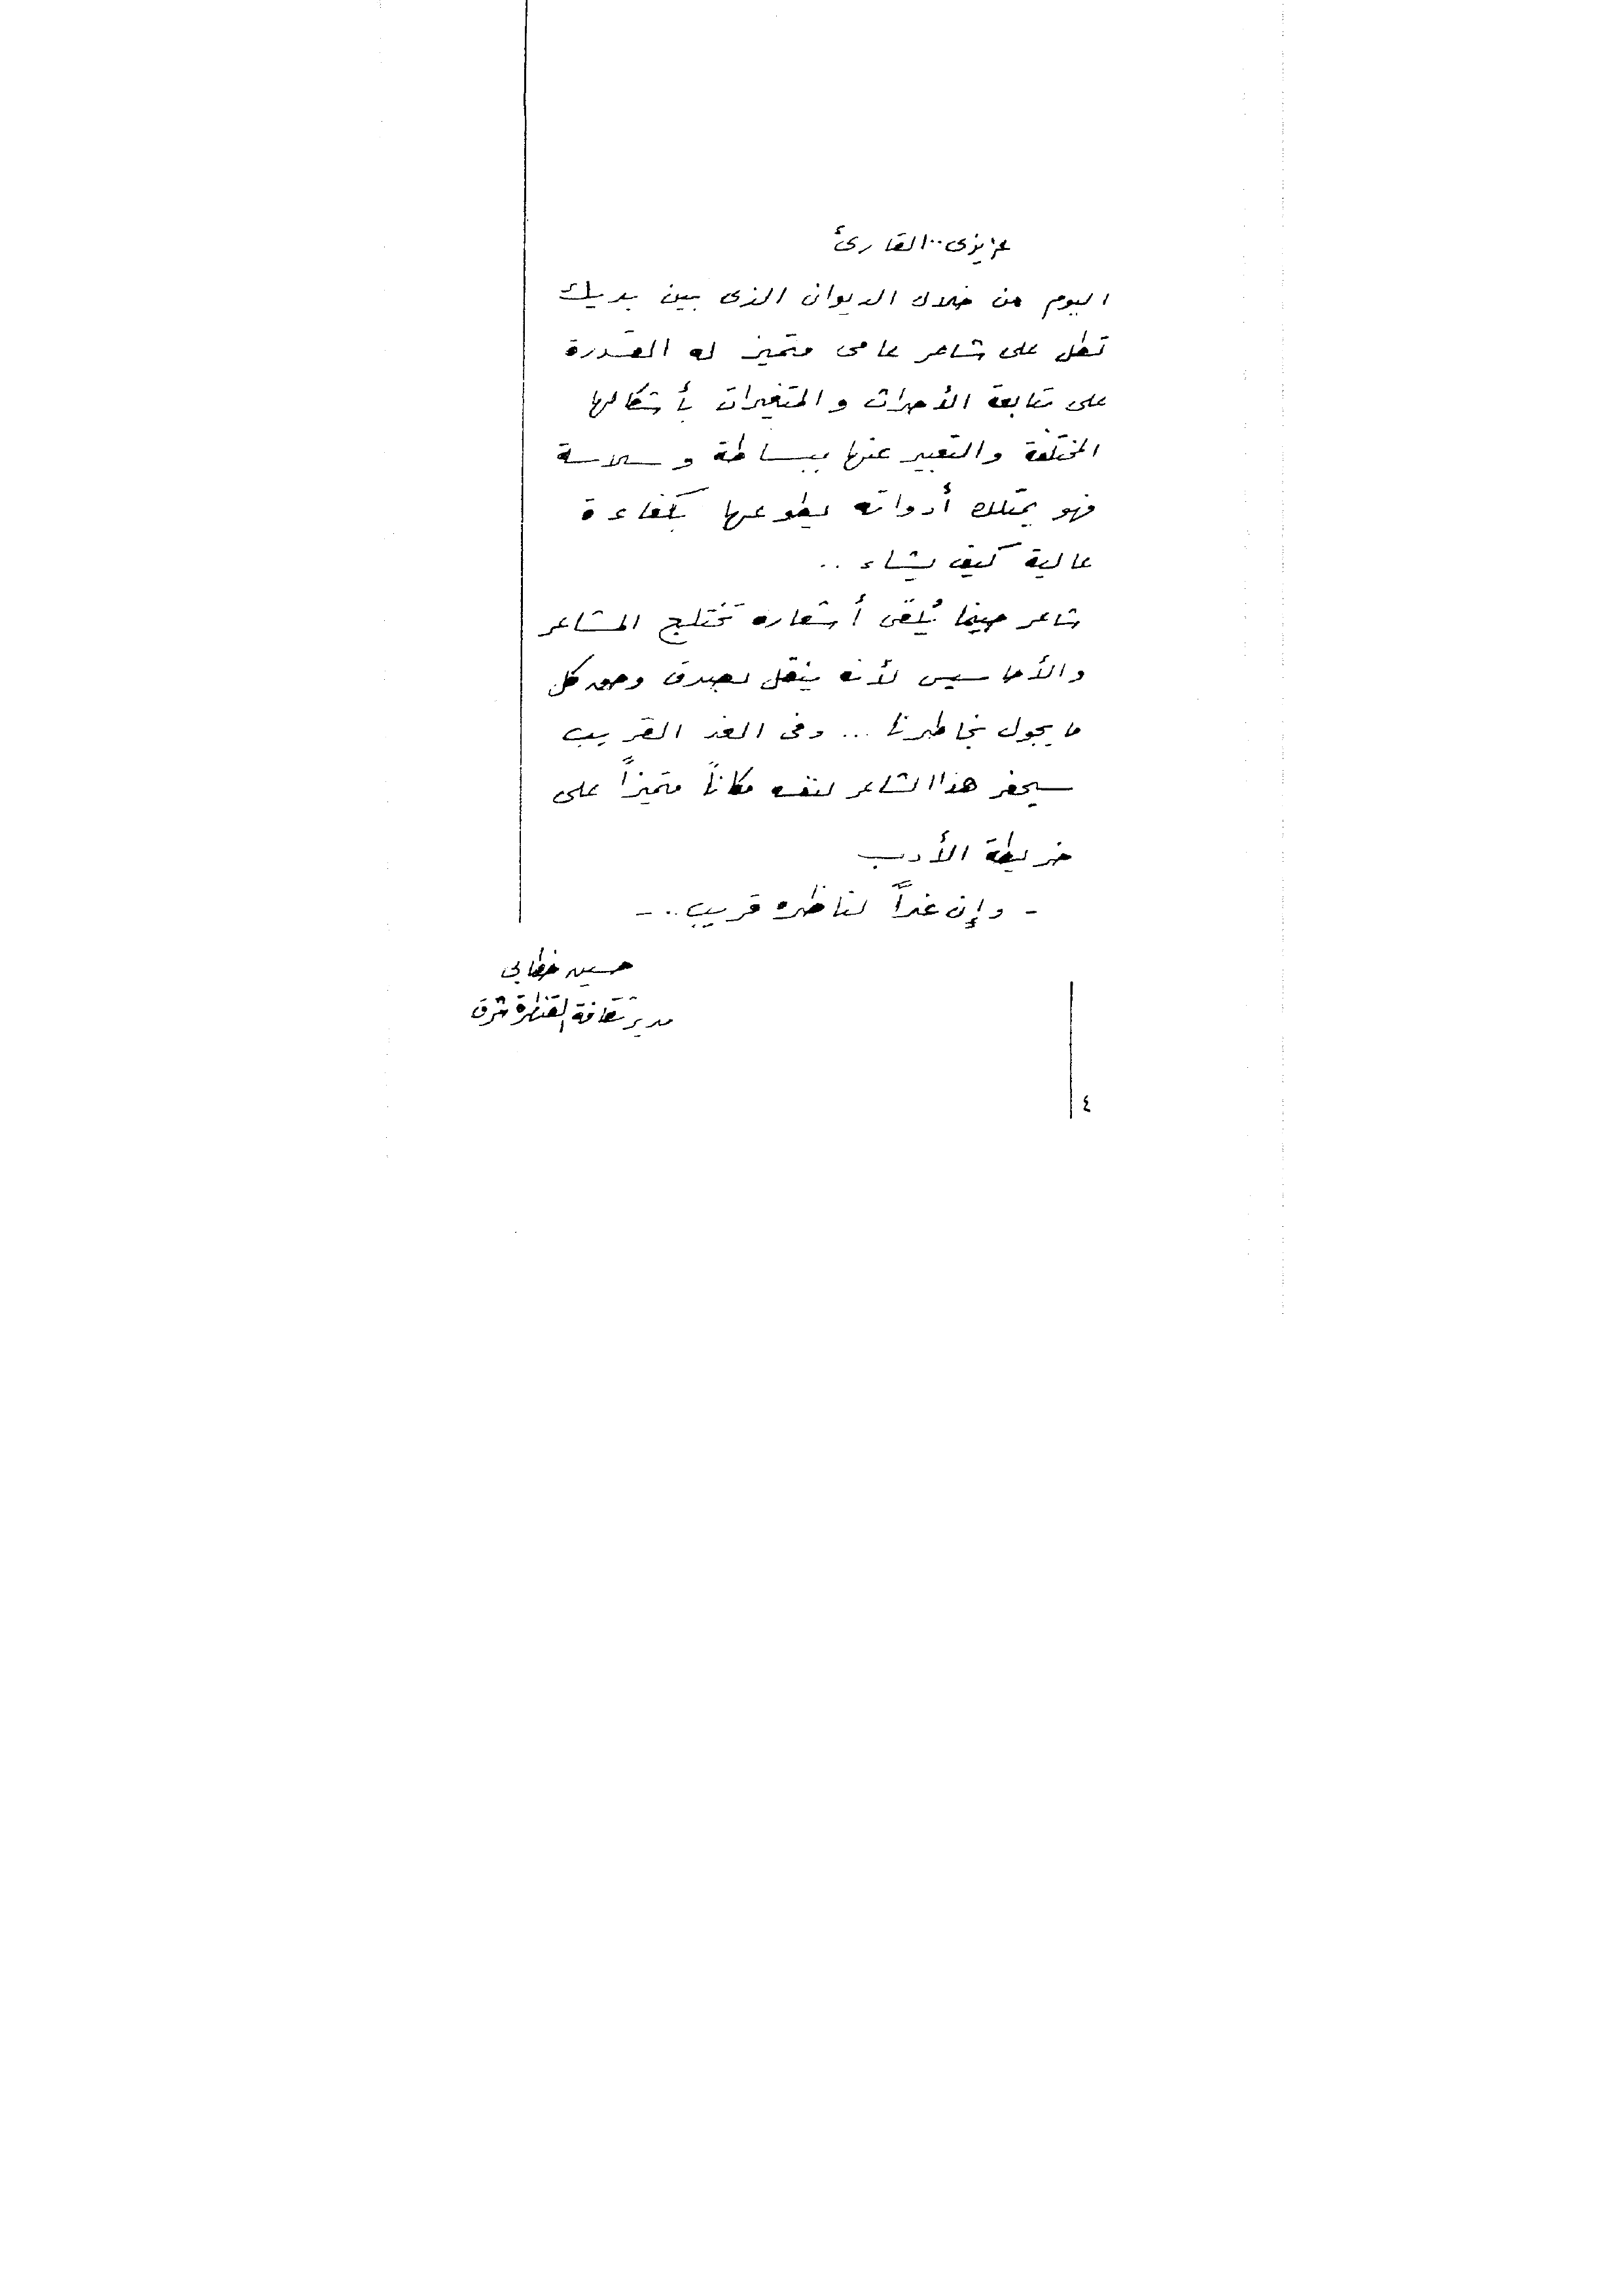 عزيزى.. القارئ
اليوم من خلال الديوان الذى بين يديك
تطل على شاعر عامى متميز له القدرة
على متابعة الأحداث والمتغيرات بأشكالها
المختلفة والتعبير عنها ببساطة وسلاسة
فهو يمتلك أدواته يطوعها بكفاءة
عالية كيف يشاء ..
شاعر حينما يُلقى أشعاره تختلج المشاعر
والأحاسيس لأنه ينقل بصدق وحق كل
ما يجول بخاطرنا ... وفى الغد القريب
سيحفر هذا الشاعر لنفسه مكاناً متميزاً على
خريطة الأدب
- وإن غداً لناظره قريب .. -
حسين خطابى
مدير ثقافة القنطرة شرق
٤